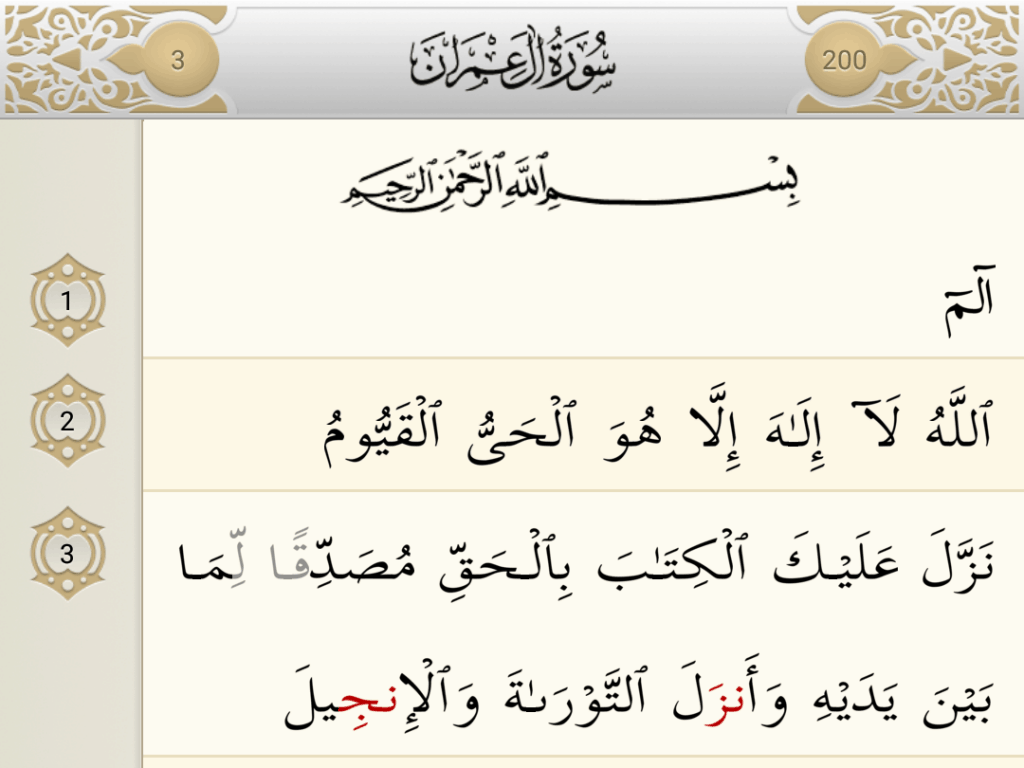 3 سُورَةُ آلِ عِمْرَانَ 200
بِسْمِ ٱللَّهِ ٱلرَّحْمَٰنِ ٱلرَّحِيمِ
1 الٓمٓ
2 ٱللَّهُ لَآ إِلَـٰهَ إِلَّا هُوَ ٱلْحَىُّ ٱلْقَيُّومُ
3 نَزَّلَ عَلَيْكَ ٱلْكِتَـٰبَ بِٱلْحَقِّ مُصَدِّقًا لِّمَا
بَيْنَ يَدَيْهِ وَأَنزَلَ ٱلتَّوْرَىٰةَ وَٱلْإِنجِيلَ